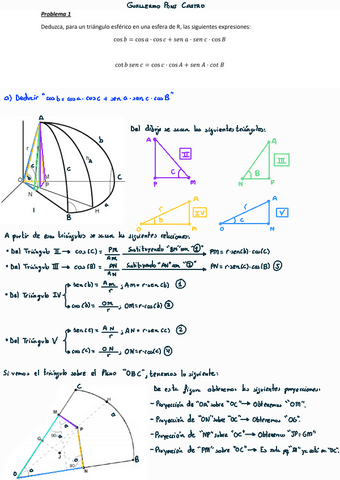 Guillermo Pons Castro
Problema 1
Deduzca, para un triángulo esférico en una esfera de R, las siguientes expresiones:
cos b = cos a · cos c + sen a · sen c · cos B
cot b sen c = cos c · cos A + sen A · cot B
a) Deducir "cos b = cos a · cos c + sen a · sen c · cos B"
Del dibujo se sacan los siguientes triángulos:
A partir de esos triángulos se sacan las siguientes relaciones:
• Del Triángulo II → cos(C) = PM/AM Sustituyendo "AM" en "①" → PM = r·sen(b)·cos(C)
• Del Triángulo III → cos(B) = PN/AN Sustituyendo "AN" en "②" → PN = r·sen(c)·cos(B) ⑤
• Del Triángulo IV
sen(b) = AM/r ; AM = r·sen(b) ①
cos(b) = OM/r ; OM = r·cos(b) ③
• Del Triángulo V
sen(c) = AN/r ; AN = r·sen(c) ②
cos(c) = ON/r ; ON = r·cos(c) ④
Si vemos el triángulo sobre el Plano "OBC", tenemos lo siguiente:
De esta figura obtenemos las siguientes proyecciones:
- Proyección de "OA" sobre "OC" → Obtenemos "OM".
- Proyección de "ON" sobre "OC" → Obtenemos "OG".
- Proyección de "NP" sobre "OC" → Obtenemos "JP = GM"
- Proyección de "PM" sobre "OC" →